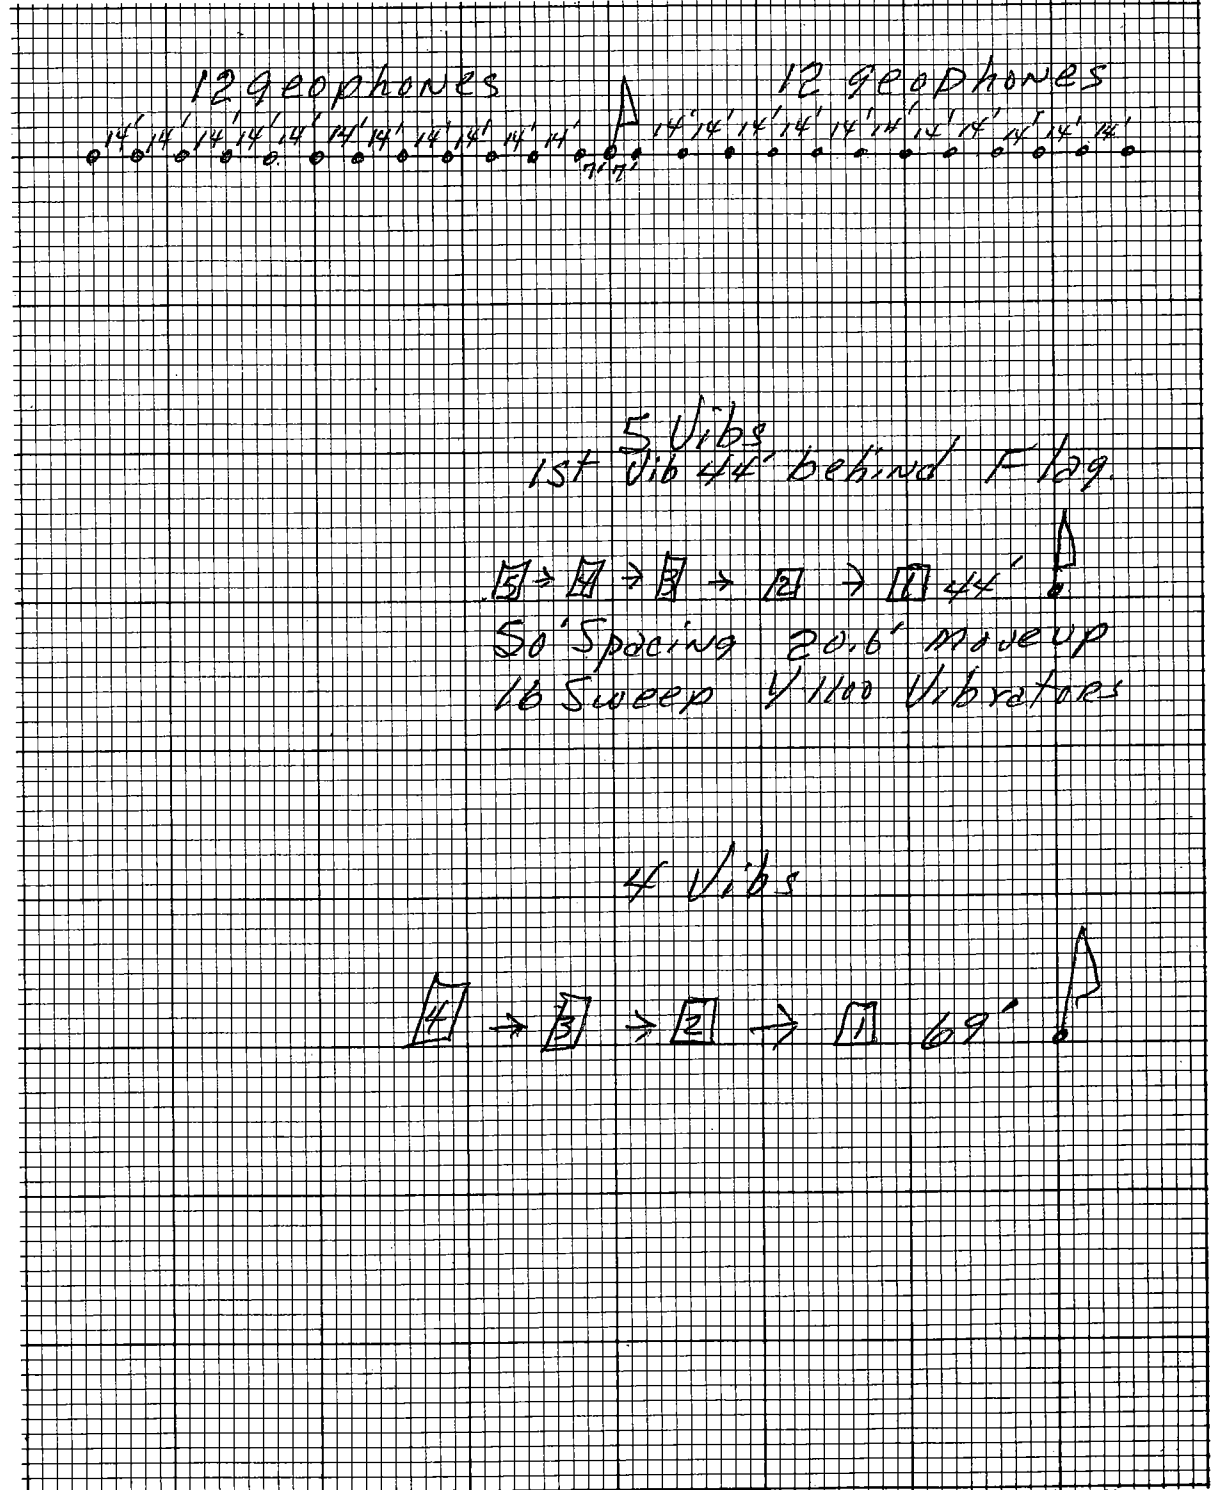 12 geophones 12 geophones
14' 14' 14' 14' 14' 14' 14' 14' 14' 14' 14' 14' 14' 14' 14' 14' 14' 14' 14' 14' 14' 14'
7' 7'
5 Vibs
1st Vib 44' behind Flag.
5 → 4 → 3 → 2 → 1 44'
50' Spacing 20.6' moveup
16 Sweep Y1100 Vibrators
4 Vibs
4 → 3 → 2 → 1 69'